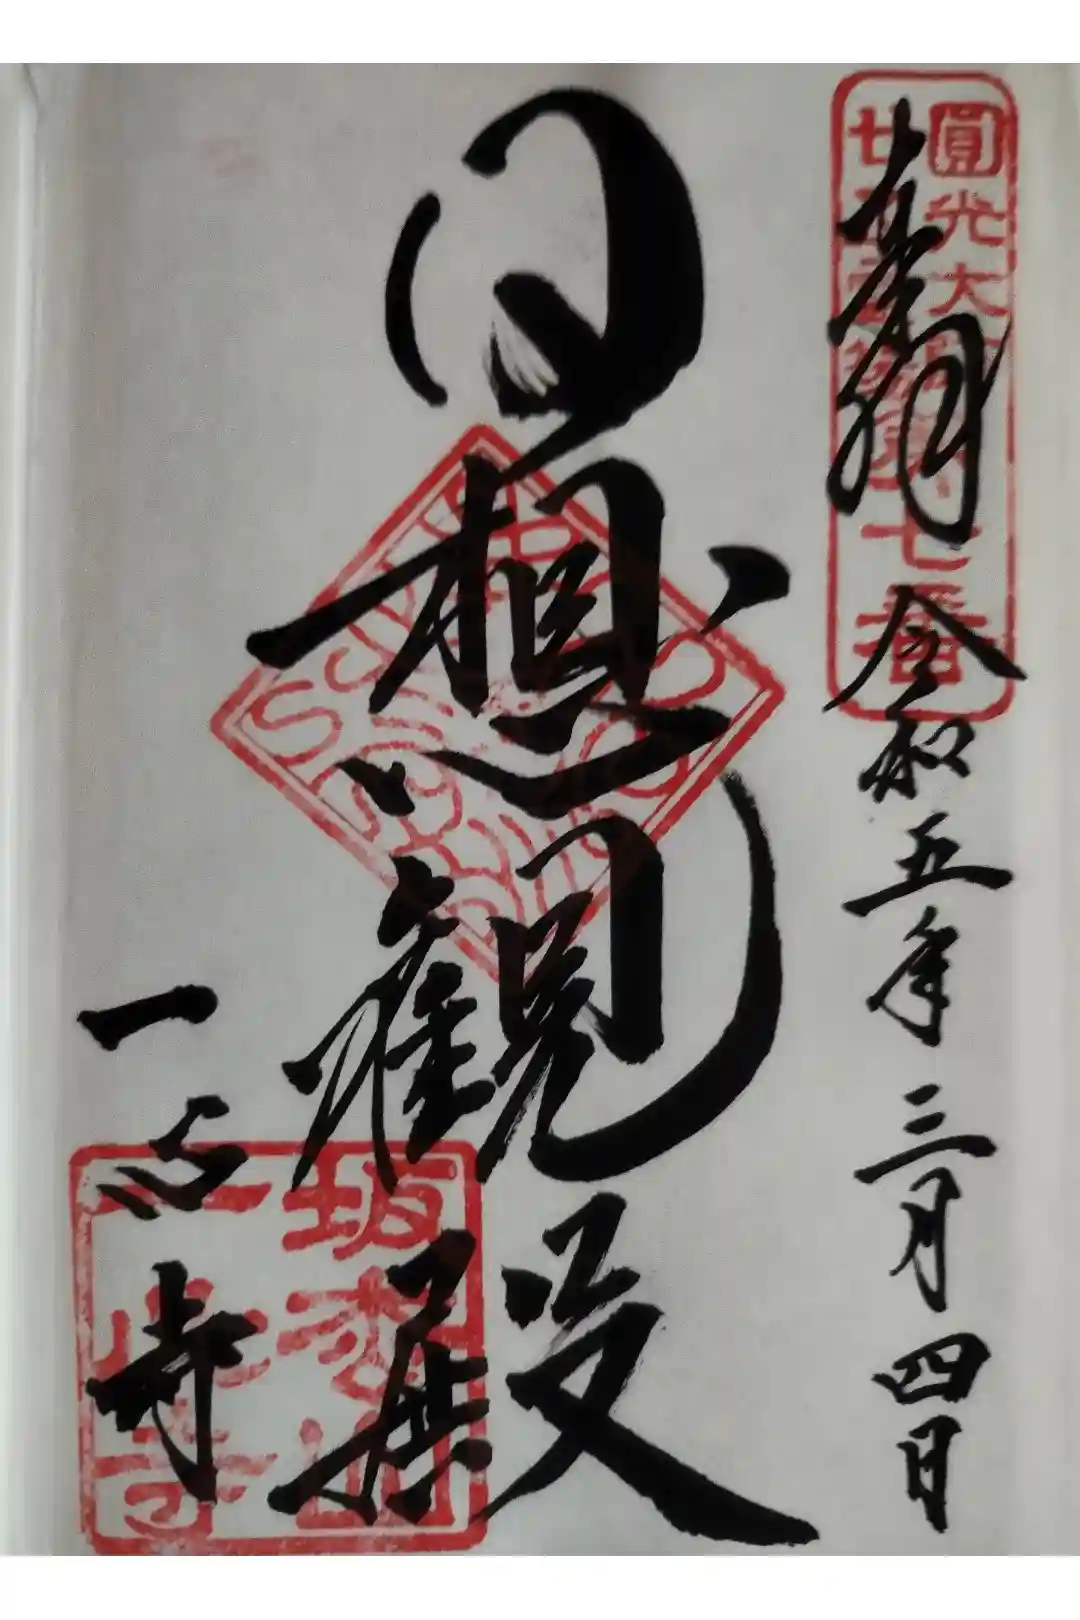 圓光大師
廿五霊場第七番
奉拝 令和五年三月四日
日想観殿
坂松山
一心寺
一心寺